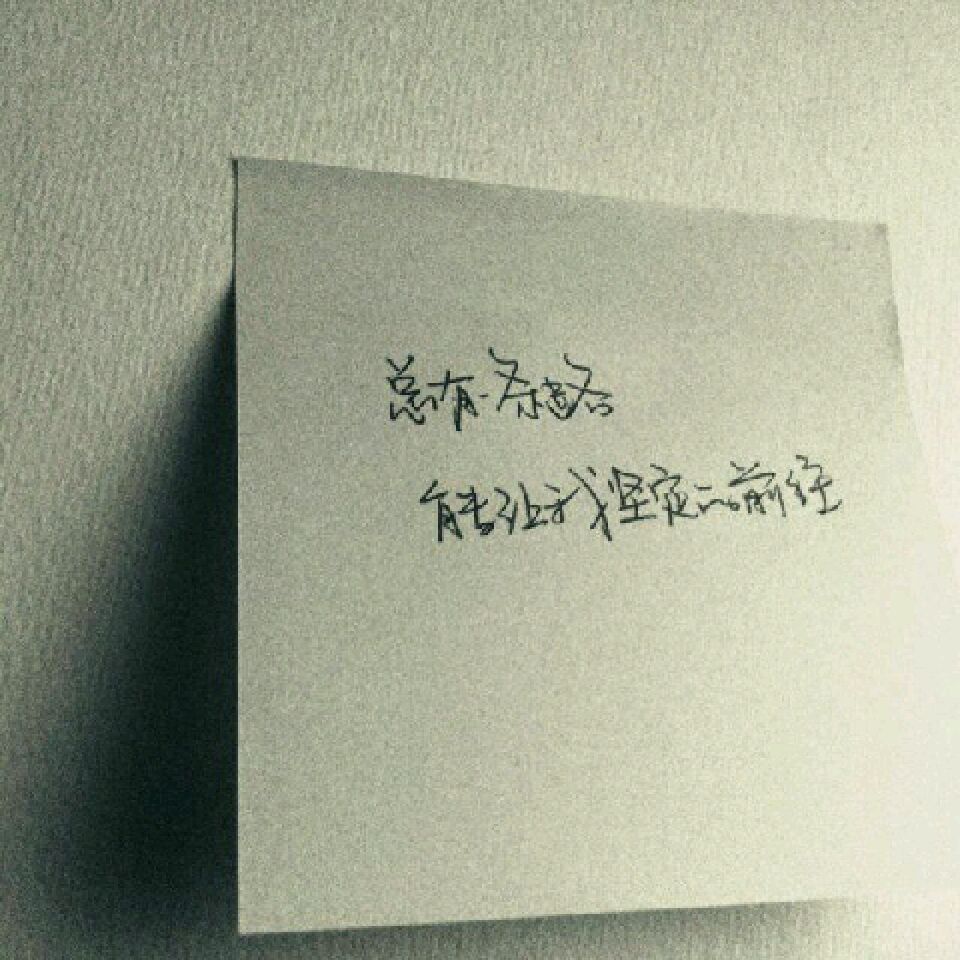 总有一条道路
能让我坚定的前往